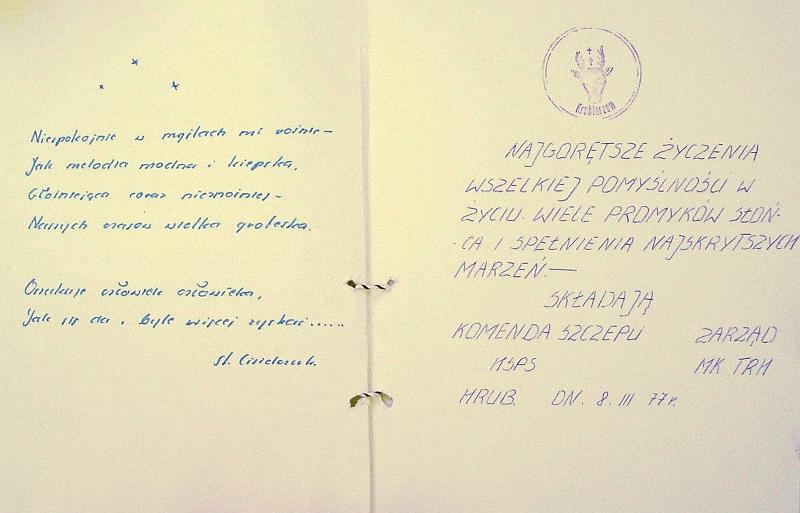 Niespokojnie w mgłach mi rośnie –
Jak melodia modna i kiepska,
Głośniejąca coraz nieznośniej –
Naszych czasów wielka groteska.
Oszukuje człowiek człowieka,
Jak się da i byle więcej zyskać......
St.
Hrubieszów
NAJGORĘTSZE ŻYCZENIA
WSZELKIEJ POMYŚLNOŚCI W
ŻYCIU. WIELE PROMYKÓW SŁOŃ-
-CA I SPEŁNIENIA NAJSKRYTSZYCH
MARZEŃ. —
SKŁADAJĄ
KOMENDA SZCZEPU ZARZĄD
HSPS MK TRH
HRUB. DN. 8. III 77 r.